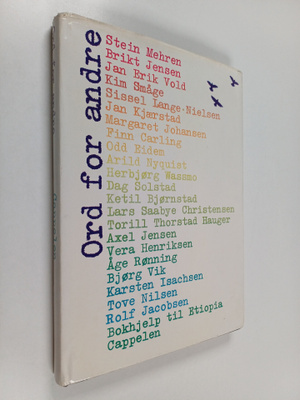 Ord for andre
Stein Mehren
Brikt Jensen
Jan Erik Vold
Kim Småge
Sissel Lange-Nielsen
Jan Kjærstad
Margaret Johansen
Finn Carling
Odd Eidem
Arild Nyquist
Herbjørg Wassmo
Dag Solstad
Ketil Bjørnstad
Lars Saabye Christensen
Torill Thorstad Hauger
Axel Jensen
Vera Henriksen
Åge Rønning
Bjørg Vik
Karsten Isachsen
Tove Nilsen
Rolf Jacobsen
Bokhjelp til Etiopia
Cappelen